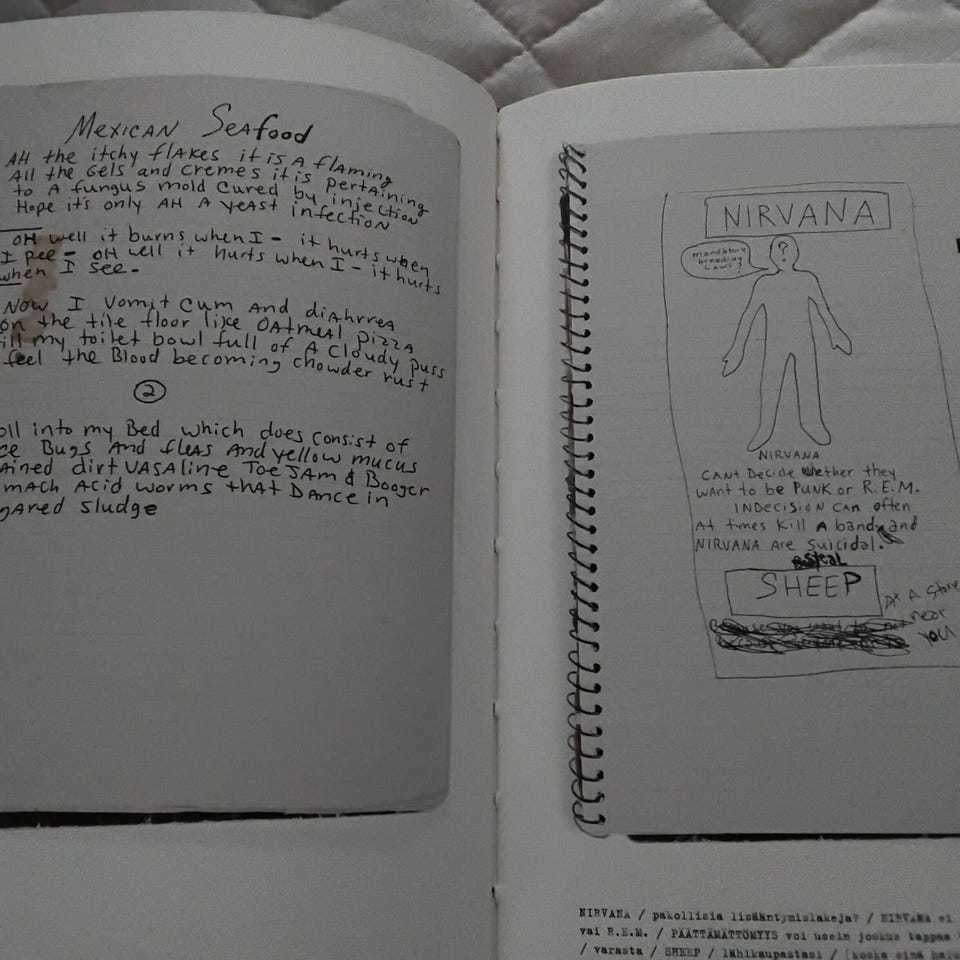 Mexican Seafood
AH the itchy flakes it is A flaming
All the Gels and cremes it is pertaining
to A fungus mold cured by injection
Hope it's only AH A yeast infection
OH well it burns when I - it hurts when
I pee - OH well it hurts when I - it hurts
when I see -
Now I vomit cum and diahrrea
on the tile floor like oatmeal pizza
fill my toilet bowl full of A cloudy puss
feel the Blood becoming chowder rust
2
oll into my Bed which does consist of
ce Bugs And fleas And yellow mucus
ained dirt VASAline Toe JAm & Booger
mach Acid worms that Dance in
gared sludge
NIRVANA
mandatory
breeding
LAWS?
?
NIRVANA
CANT Decide whether they
want to be PUNK or R.E.M.
INDecision can often
At times Kill A band and
NIRVANA Are suicidal.
steal
SHEEP
At A Store
near
you
NIRVANA / pakollisia lisääntymislakeja? / NIRVANA ei
vai R.E.M. / PÄÄTTÄMÄTTÖMYYS voi usein joskus tappaa
/ varasta / SHEEP / lähikaupastasi / [koska sinä